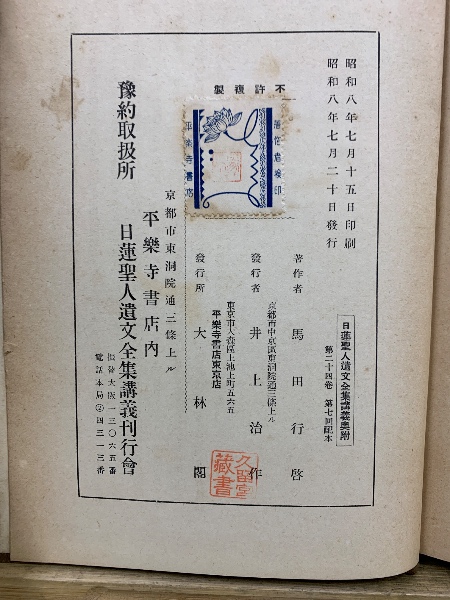 昭和八年七月十五日印刷
昭和八年七月二十日發行
日蓮聖人遺文全集講義奥附
第二十四卷 第七回配本
著作者 馬田行啓
京都市中京區東洞院通三條上ル
發行者 井上治作
東京市大森區上池上町五六五
平樂寺書店東京店
發行所 大林閣
不許複製
著作者檢印
平樂寺書店
久留宮藏書
京都市東洞院通三條上ル
平樂寺書店内
豫約取扱所 日蓮聖人遺文全集講義刊行會
振替大阪一三〇六五番
電話本局②四三一三番